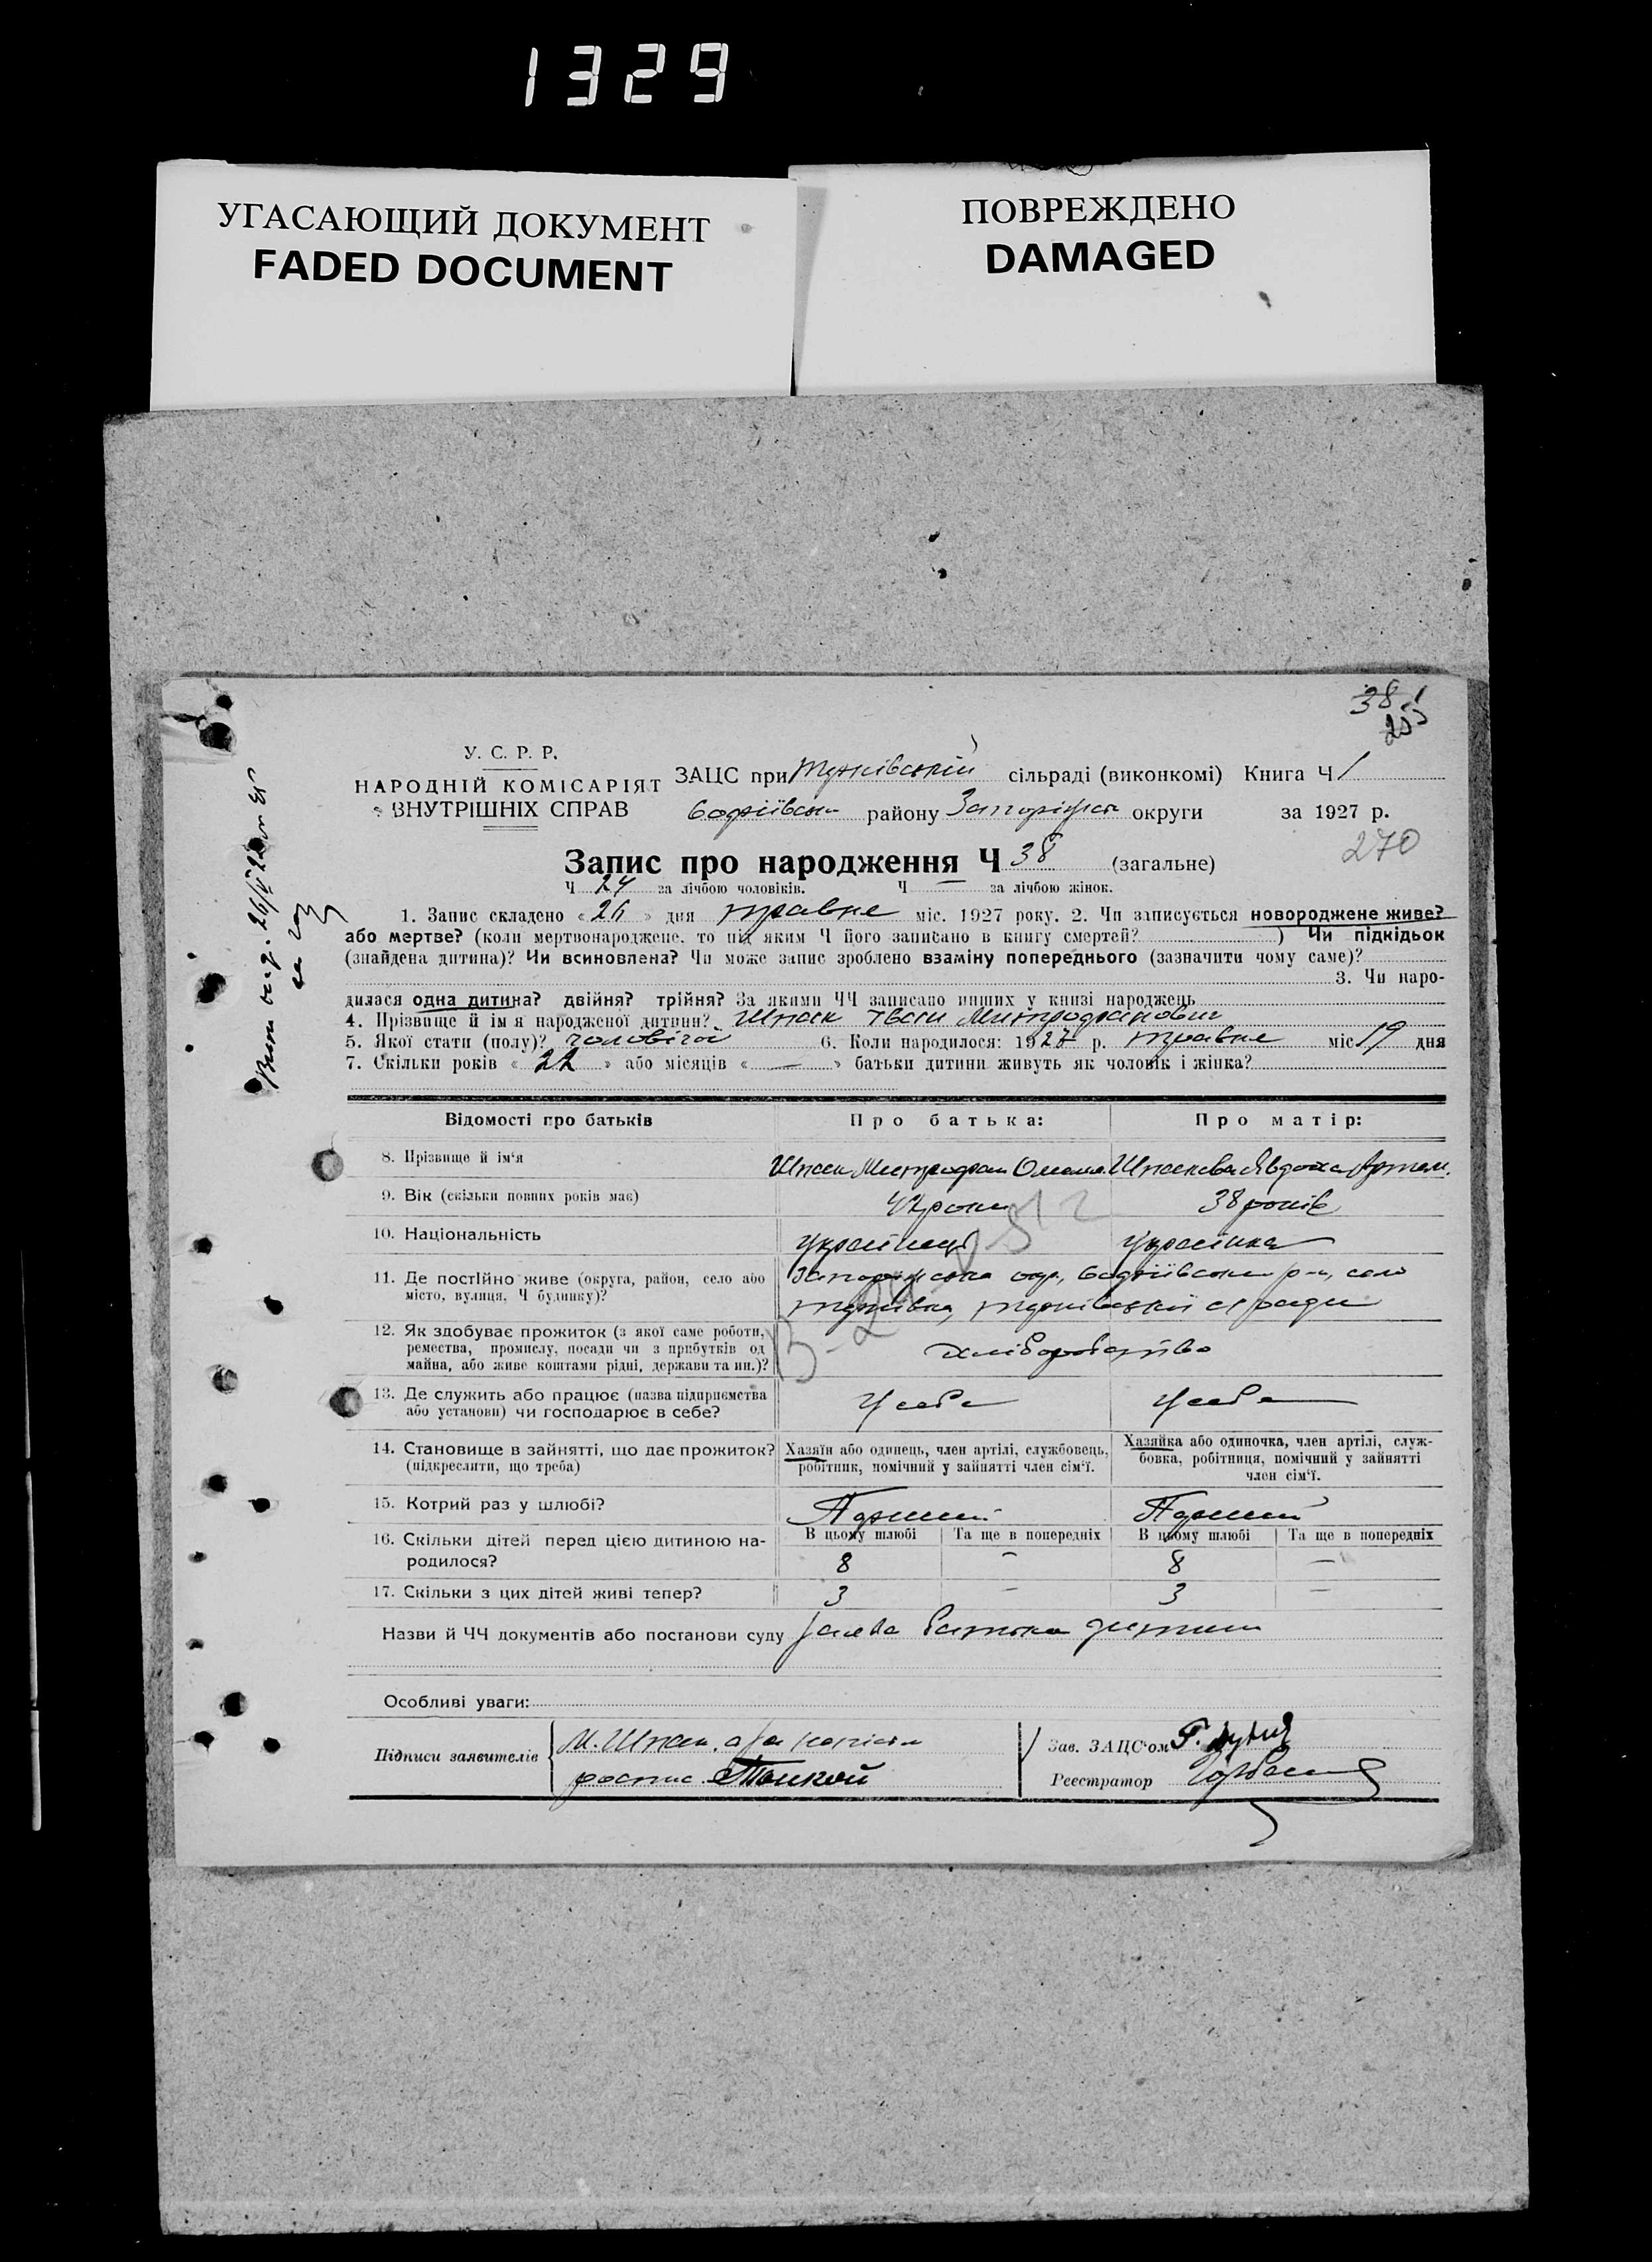 1329
УГАСАЮЩИЙ ДОКУМЕНТ
FADED DOCUMENT
ПОВРЕЖДЕНО
DAMAGED
38
У. С. Р. Р.
НАРОДНІЙ КОМІСАРІЯТ
ВНУТРІШНІХ СПРАВ
ЗАЦС при сільраді (виконкомі) Книга Ч 1
району округи за 1927 р.
270
Запис про народження Ч 38 (загальне)
Ч 24 за лічбою чоловіків. Ч — за лічбою жінок.
1. Запис складено « 26 » дня травня міс. 1927 року. 2. Чи записується новороджене живе?
або мертве? (коли мертвонароджене, то під яким Ч його записано в книгу смертей? ) Чи підкідьок
(знайдена дитина)? Чи всиновлена? Чи може запис зроблено взаміну попереднього (зазначити чому саме)?
3. Чи наро-
дилася одна дитина? двійня? трійня? За якими ЧЧ записано инших у книзі народжень
4. Прізвище й ім я народженої дитини? Шпак Іван Митрофанович
5. Якої стати (полу)? чоловіча 6. Коли народилося: 1927 р. травня міс 19 дня
7. Скільки років « 22 » або місяців « — » батьки дитини живуть як чоловік і жінка?
Відомості про батьків Про батька: Про матір:
8. Прізвище й ім‘я Шпак Митрофан Шпакова Явдоха Артем.
9. Вік (скільки повних років має) 42 роки 38 років
10. Національність Українець Українка
11. Де постійно живе (округа, район, село або
місто, вулиця, Ч будинку)?
12. Як здобуває прожиток (з якої саме роботи,
ремества, промислу, посади чи з прибутків од
майна, або живе коштами рідні, держави та ин.)? Хліборобство
13. Де служить або працює (назва підприємства
або установи) чи господарює в себе? У себе У себе
14. Становище в зайнятті, що дає прожиток?
(підкреслити, що треба)
Хазяїн або одинець, член артілі, службовець,
робітник, помічний у зайнятті член сім‘ї.
Хазяйка або одиночка, член артілі, служ-
бовка, робітниця, помічний у зайнятті
член сім‘ї.
15. Котрий раз у шлюбі? Перший Перший
16. Скільки дітей перед цією дитиною на-
родилося?
В цьому шлюбі Та ще в попередніх В цьому шлюбі Та ще в попередніх
8 — 8 —
17. Скільки з цих дітей живі тепер? 3 — 3 —
Назви й ЧЧ документів або постанови суду Заява батька дитини
Особливі уваги:
Підписи заявителів М. Шпак,
роспис.
Зав. ЗАЦС‘ом
Реєстратор